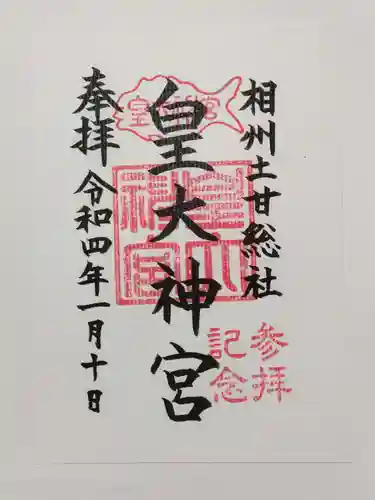 相州土甘総社
皇大神宮
皇大神宮
皇大神宮
参拝
記念
奉拝
令和四年一月十日